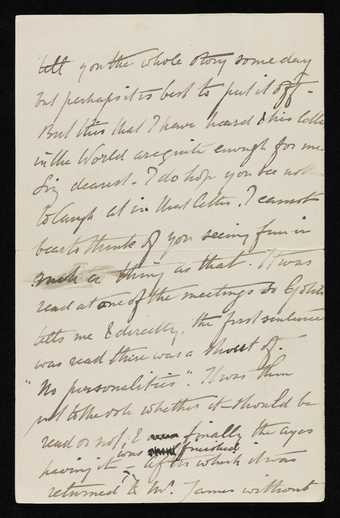 tell you the whole story some day
but perhaps it is best to put it off -
But this that I have heard & his letter
in the World are quite enough for me
dearest. I do hope you see not
to laugh at in that letter. I cannot
bear to think of you seeing fun in
such a thing as that. It was
read at one of the meetings so
tells me & directly the first sentence
was read there was a shout of
"No personalities". It was then
put to the vote whether it should be
read or not, & finally the ayes
having it - was finished after which it was
returned to Mr. James without